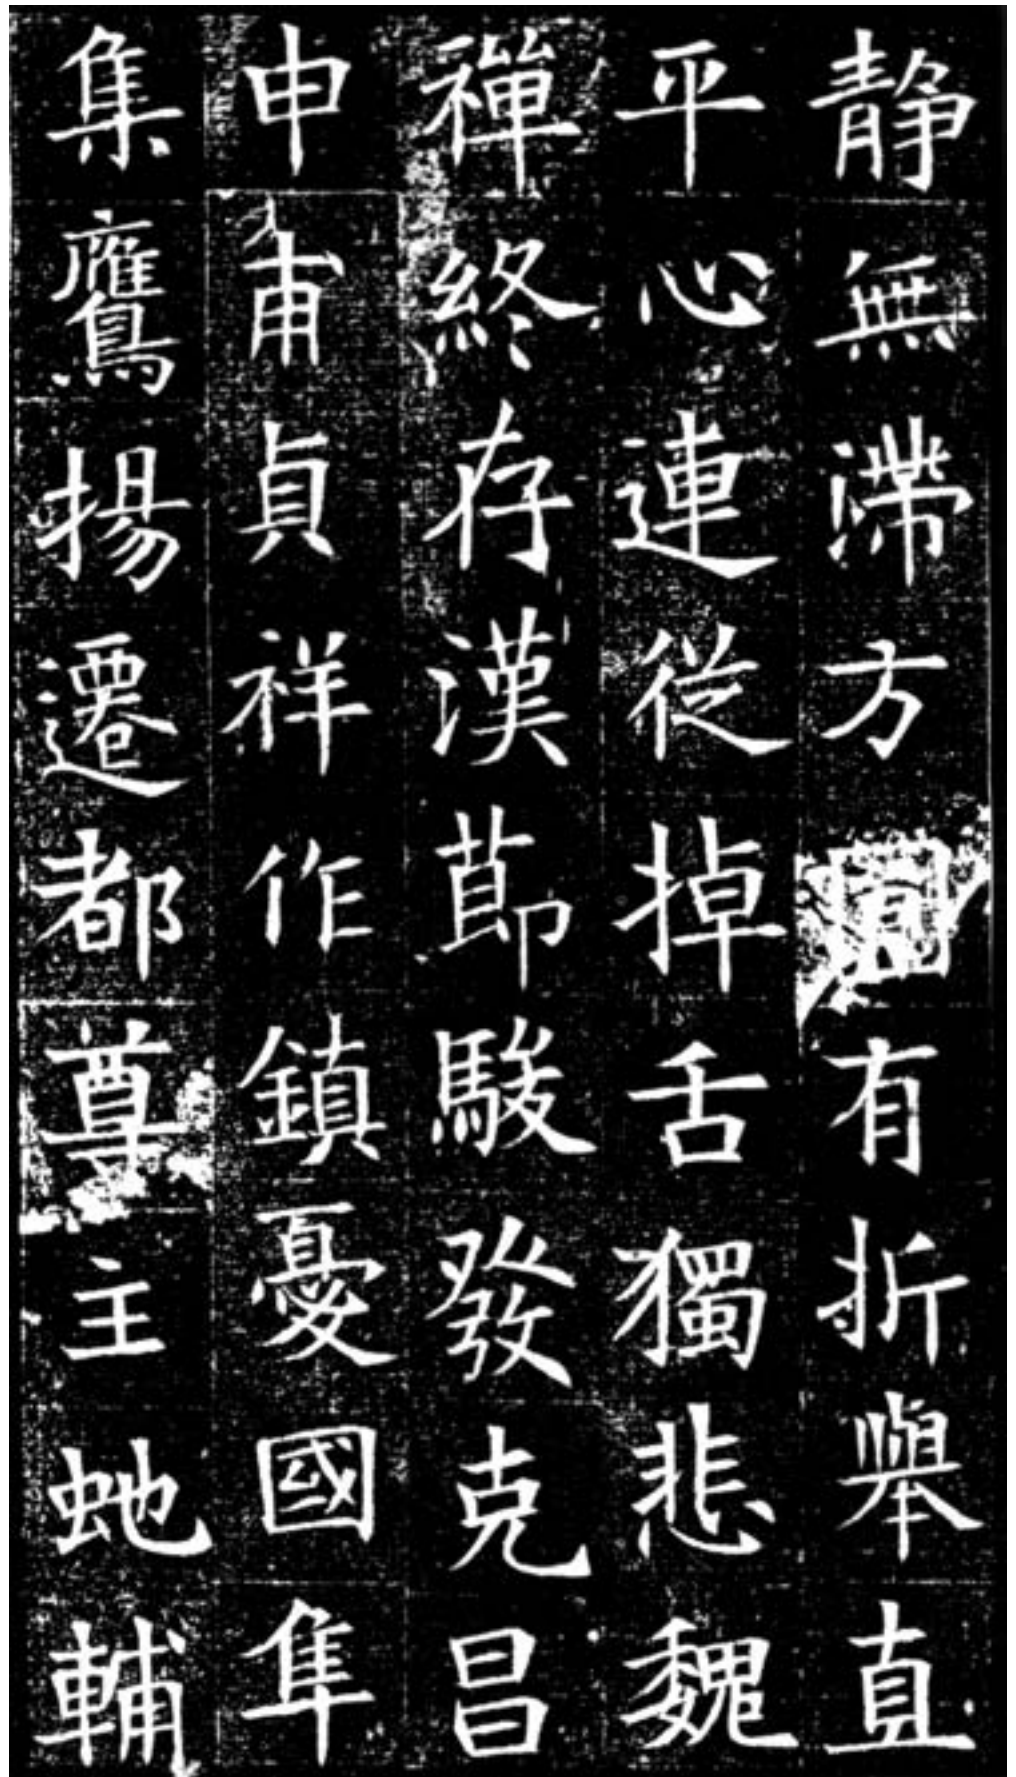 静無滯方圓有折舉直
平心連從掉舌獨悲魏
禪終存漢節駿發克昌
申甫貞祥作鎮憂國隼
集鷹揚遷都尊主虵輔